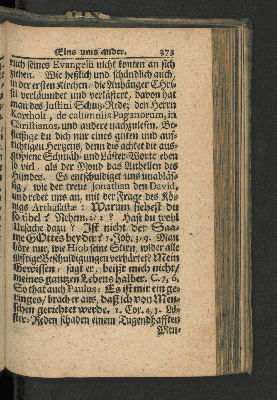 Eins ums ander. 373
ruch seines Evangelii nicht konten an sich
ziehen. Wie heßlich und schändlich auch,
in der ersten Kirchen, die Anhänger Chri-
sti verläumdet und verlästert, davon hat
man des Justini Schutz-Rede; den Herrn
Kortholt, de calumniis Paganorum, in
Christianos, und andere nachzulesen. Be-
fleissige du dich nur eines guten und auf-
richtigen Hertzens, denn du achtet die aus-
gespiene Schmäh- und Läster-Worte eben
so viel, als der Mond das Anbellen des
Hundes. Es entschuldiget uns unabläs-
sig, wie der treue Jonathan den David,
und redet uns an, mit der Frage des Kö-
nigs Arthasastha: Warum siehest du
so übel? Nehem. 2/2? Hast du wohl
Ursache dazu? Ist nicht der Saa-
me GOttes bey dir? 1. Joh. 3, 9. Man
höre nur, wie Hiob seine Stirn, wider alle
giftige Beschuldigungen verhärtet? Mein
Gewissen, sagt er, beißt mich nicht/
meines gantzen Lebens halber. C. 27, 6.
So that auch Paulus: Es ist mir ein ge-
ringes, brach er aus, daß ich von Men-
schen gerichtet werde. 1. Cor. 4, 3. Lä-
ster-Reden schaden einem Tugendhafften
Men-